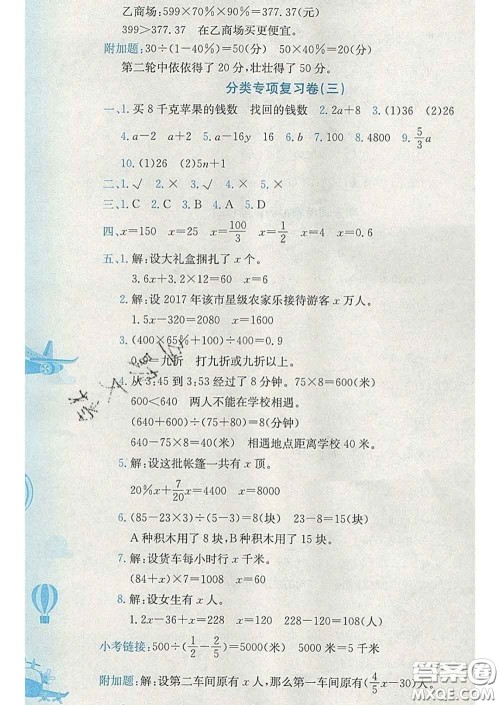 乙商场:599×70%×90%=377.37(元)
399>377.37 在乙商场买更便宜。
附加题:30÷(1-40%)=50(分) 50×40%=20(分)
第二轮中依依得了20分,壮壮得了50分。
分类专项复习卷(三)
一、1.买8千克苹果的钱数 找回的钱数 2.2a+8 3.(1)36 (2)26
4.a-2 a+2 5.a-16y 16 6.100 7.90 8.4800 9.5/3a
10.(1)26 (2)5n+1
二、1.√ 2.× 3.√ 4.× 5.×
三、1.C 2.C 3.B 4.A 5.D
四、x=150 x=25 x=100/3 x=1/2 x=4 x=0.6
五、1.解:设大礼盒捆扎了x个。
3.6x+3.2×12=60 x=6
2.解:设2017年该市星级农家乐接待游客x万人。
1.5x-320=1080 x=1600
3.(400×65%+100)÷400=0.9
=九折 打九折或九折以上。
4.从3:45到3:53经过了8分钟。75×8=600(米)
600<640 两人不能在学校相遇。
(640+600)÷(75+80)=8(分钟)
640-75×8=40(米) 相遇地点距离学校40米。
5.解:设这批帐篷一共有x顶。
20%x+7/20x=4400 x=8000
6.(85-23×3)÷(5-3)=8(块) 23-8=15(块)
A种积木用了8块,B种积木用了15块。
7.解:设货车每小时行x千米。
(84+x)×7=1008 x=60
8.解:设女生有x人。
1.2x-36+x=228 x=120 228-120=108(人)
小考链接:500÷(1/2-2/5)=5000(米) 5000米=5千米
附加题:解:设第二车间原有x人,那么第一车间原有(4/5x-30)人。
答案圈
MXQE.COM